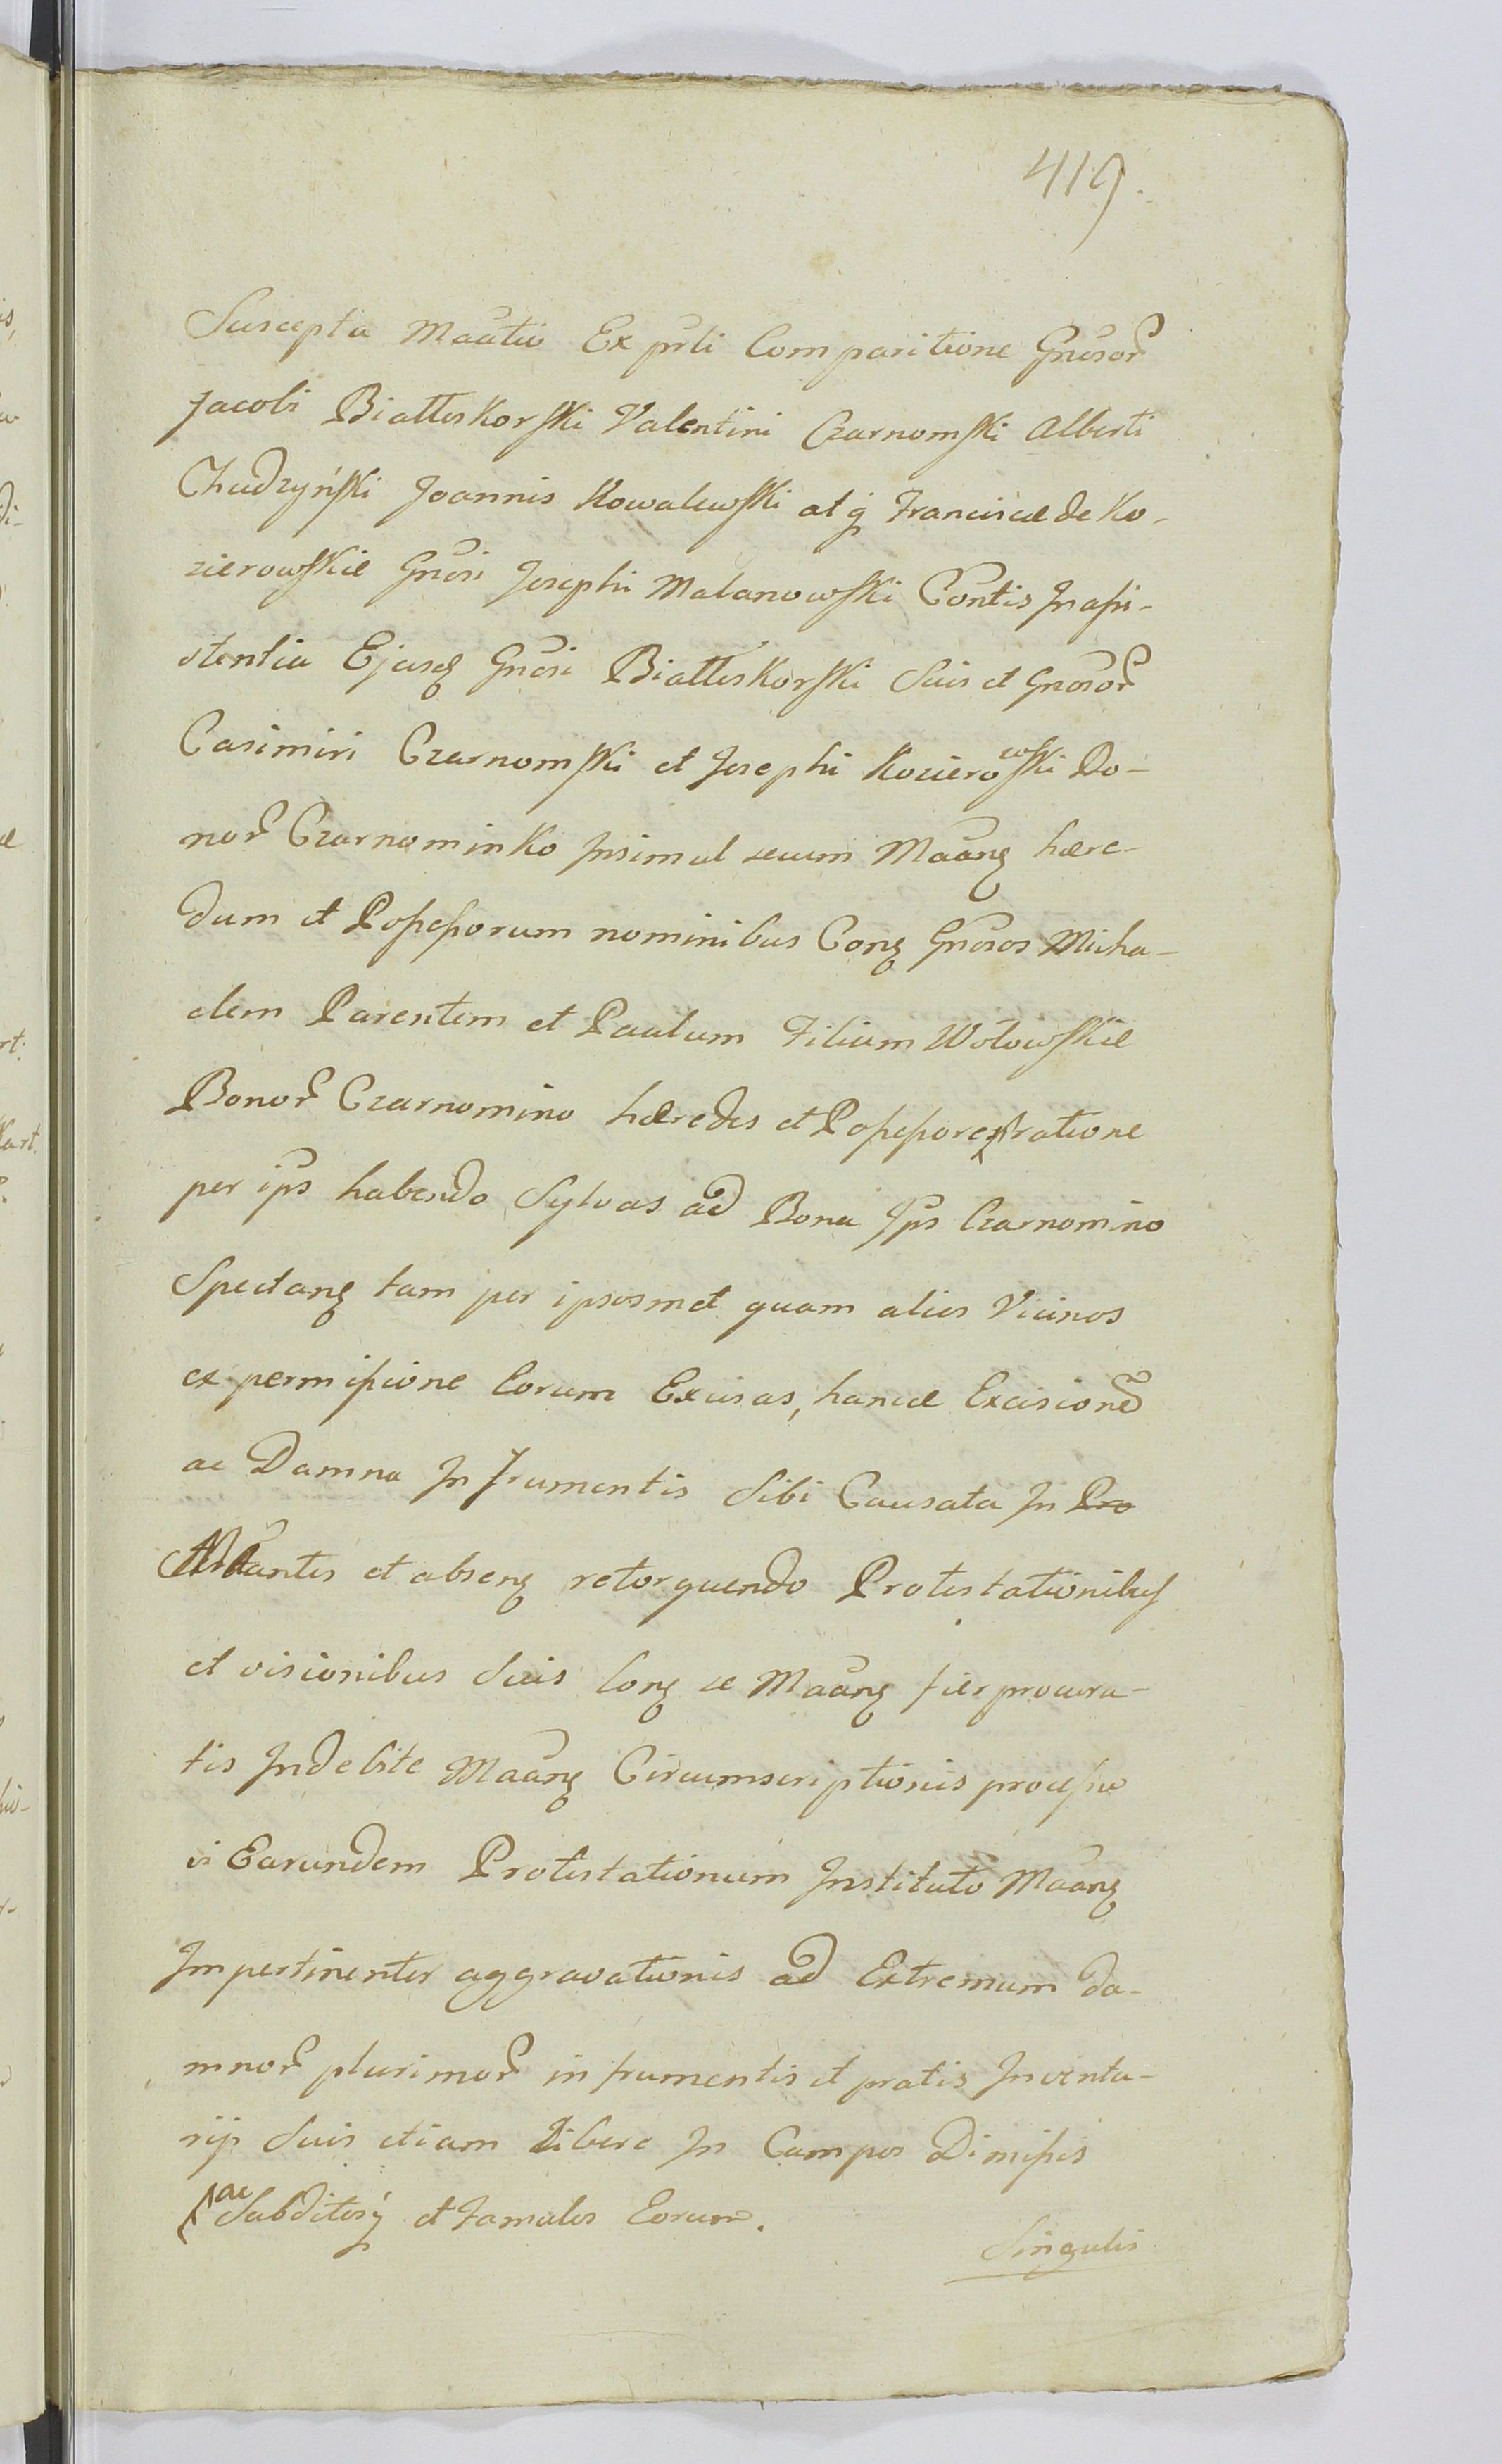 419.
Suscepta Maātio Ex pr̃li Comparitione Gn̄osor̃
Jacobi Białłoskorski Valentini Czarnomski Alberti
Chudzyński Joannis Kowalewski atq̨ Franciscæ de Ko-
zierowskie Gn̄osi Josephi Malanowski Con̄tis In assi-
stentia Ejusq̨ Gn̄osi Białłoskorski Suis et Gnōsor̃
Casimiri Czarnomski et Josephi Kozierowski Bo-
nor̃ Czarnominko Insimul secum Maānȝ hære-
dum et Possessorum nominibus Conȝ Gn̄osos Micha-
elem Parentem et Paulum Filium Wołowskie
Bonor̃ Czarnomino hæredes et Possessores ratione
per ip̄s habendo Sylvas ad Bona Ip̄s Czarnomino
Spectanȝ tam per ipsosmet quam alios Vicinos
ex permissione Eorum Excisas, hancce Excisionē
ac Damna In frumentis Sibi Causata In Pro
Maantes et absenȝ retorquendo Protestationibus
et visionibus Suis Conȝ se Maānȝ fier procura-
tis Indebite Maānȝ Circumscriptionis processu
vi Earundem Protestationum Instituto Maānȝ
Impertinenter aggravationis ad Extremum da-
mnor̃ plurimor̃ in frumentis et pratis Inventa-
rijs Suis etiam Libere In Campos Dimissis
ac Subditosq̨ et Famulos Eorum.
Singulis